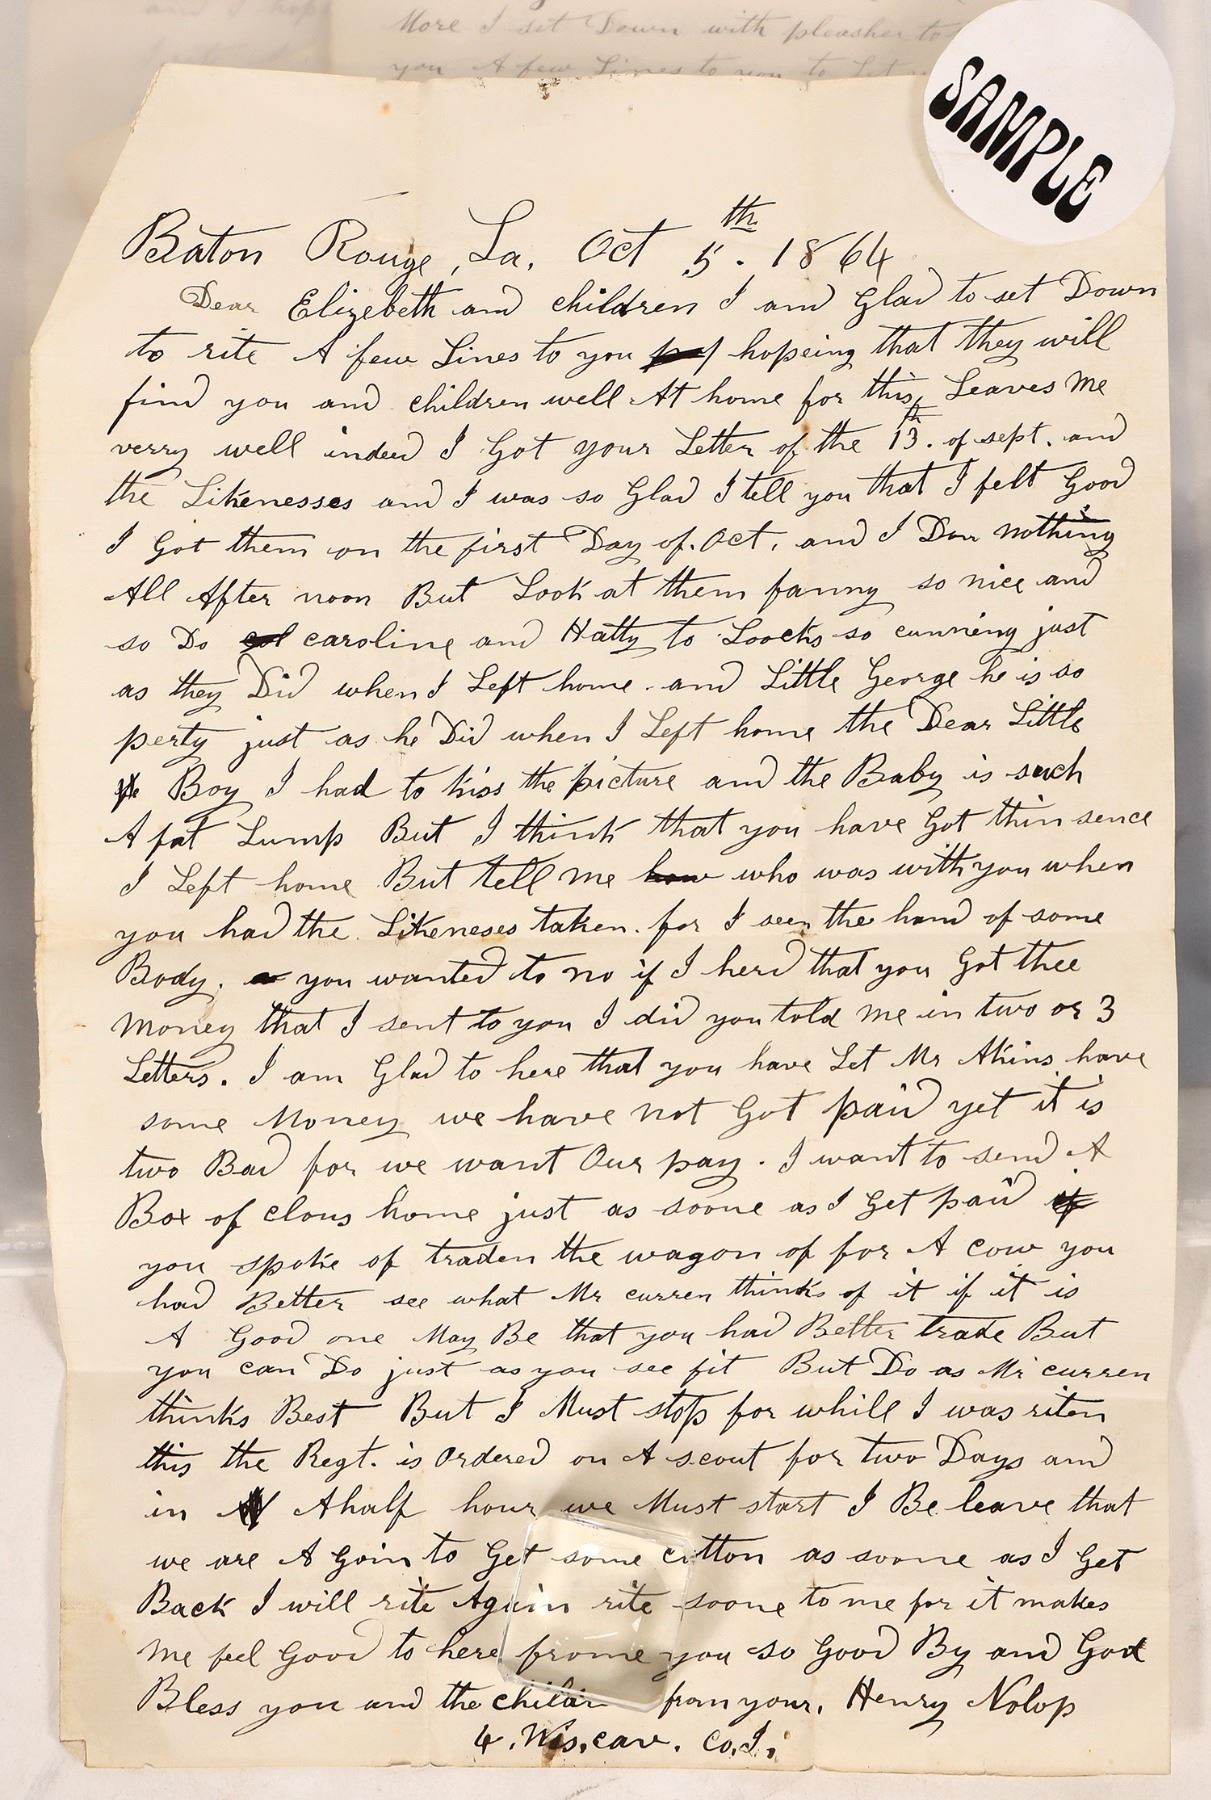 and I hop
More I set Down with pleasher to
you A few Lines to you to Let
SAMPLE
Baton Rouge, La, Oct 5th. 1864
Dear Elizebeth and children I am Glad to set Down
to rite A few Lines to you hopeing that they will
find you and children well At home for this Leaves Me
verry well indeed I Got your Letter of the 13th. of sept. and
the Likenesses and I was so Glad I tell you that I felt Good
I Got them on the first Day of. Oct, and I Don nothing
All After noon But Look at them fanny so nice and
so Do caroline and Hatty to Loocks so cunning just
as they Did when I Left home. and Little George he is so
perty just as he Did when I Left home the Dear Little
Boy I had to kiss the picture and the Baby is such
A fat Lump But I think that you have Got thin sence
I Left home But tell me how who was with you when
you had the Likeneses taken. for I seen the hand of some
Body. you wanted to no if I herd that you Got thee
Money that I sent to you I did you told me in two or 3
Letters. I am Glad to here that you have Let Mr Akins have
some Money we have not Got paid yet it is
two Bad for we want Our pay. I want to send A
Box of clous home just as soone as I Get paid if
you spoke of traden the wagon of for A cow you
had Better see what Mr curren thinks of it if it is
A Good one May Be that you had Better trade But
you can Do just as you see fit But Do as Mr curren
thinks Best But I Must stop for while I was riten
this the Regt. is Ordered on A scout for two Days and
in A half hour we Must start I Be leave that
we are A Goin to Get some cotton as soone as I Get
Back I will rite Again rite soone to me for it makes
me feel Good to here frome you so Good By and God
Bless you and the from your, Henry Nolop
4. Wis, cav. Co. I.